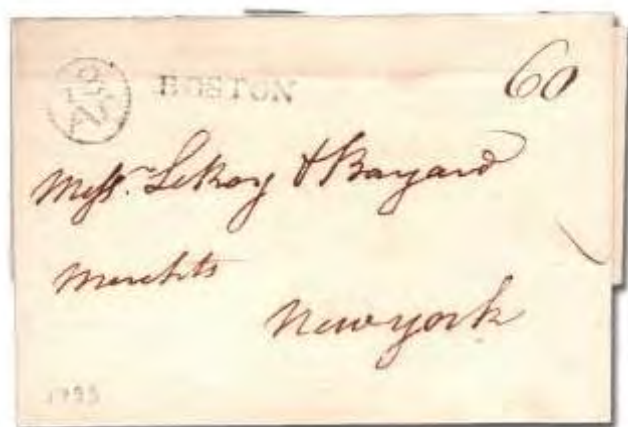 BOSTON 60
Messrs. LeRoy & Bayard
Merchts
New york